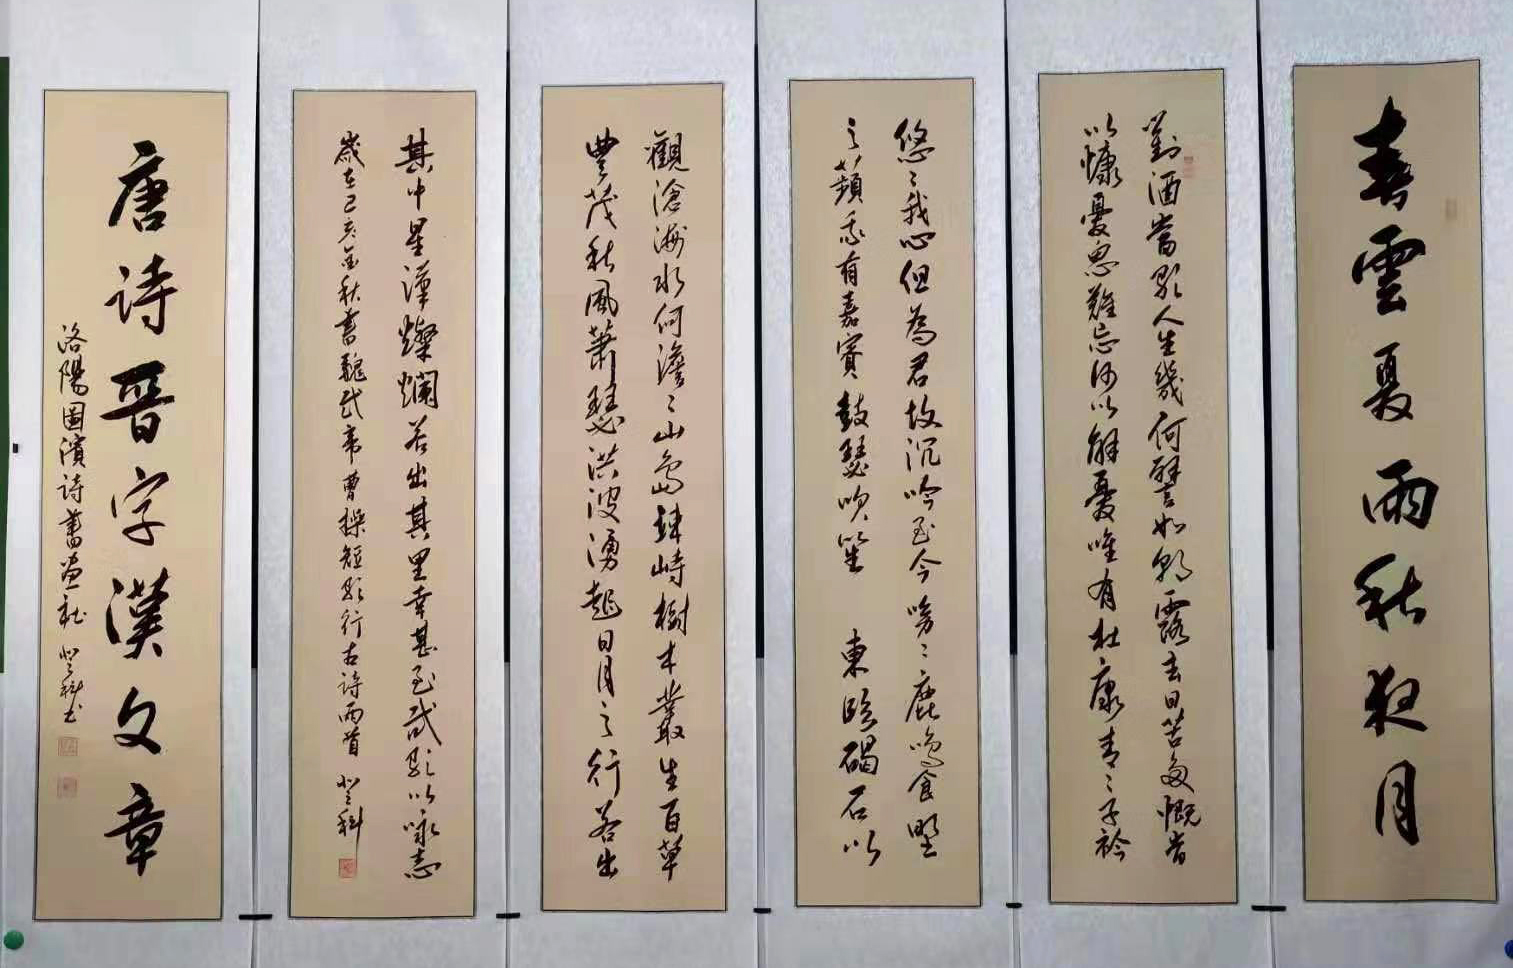 春雲夏雨秋夜月
對酒當歌人生幾何譬如朝露去日苦多慨當
以慷憂思難忘何以解憂唯有杜康青〻子衿
悠〻我心但為君故沉吟至今呦〻鹿鳴食野
之蘋我有嘉賓鼓瑟吹笙 東臨碣石以
觀滄海水何澹〻山島竦峙樹木叢生百草
豐茂秋風蕭瑟洪波湧起日月之行若出
其中星漢燦爛若出其里幸甚至哉歌以詠志
歲在己亥金秋書魏武帝曹操短歌行古詩兩首 登科
唐詩晉字漢文章
洛陽圖濱詩書畫社 登科書